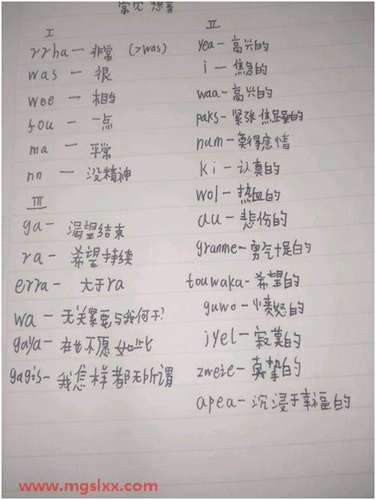 常见 想音
I
rrha — 非常 (>was)
was — 很
wee — 相当
fou — 一点
ma — 平常
nn — 没精神
III
ga — 渴望结束
ra — 希望持续
erra — 大于ra
wa — 无关紧要与我何干?
gaya — 再也不愿如此
gagis — 我怎样都无所谓
II
yea — 高兴的
i — 焦急的
waa — 高兴的
paks — 紧张 焦虑的
num — 莫得感情
ki — 认真的
wol — 热血的
au — 悲伤的
granme — 勇气十足的
touwaka — 希望的
guwo — 愤怒的
jyel — 寂寞的
zweie — 真挚的
apea — 沉浸于幸福的
www.mgslxx.com